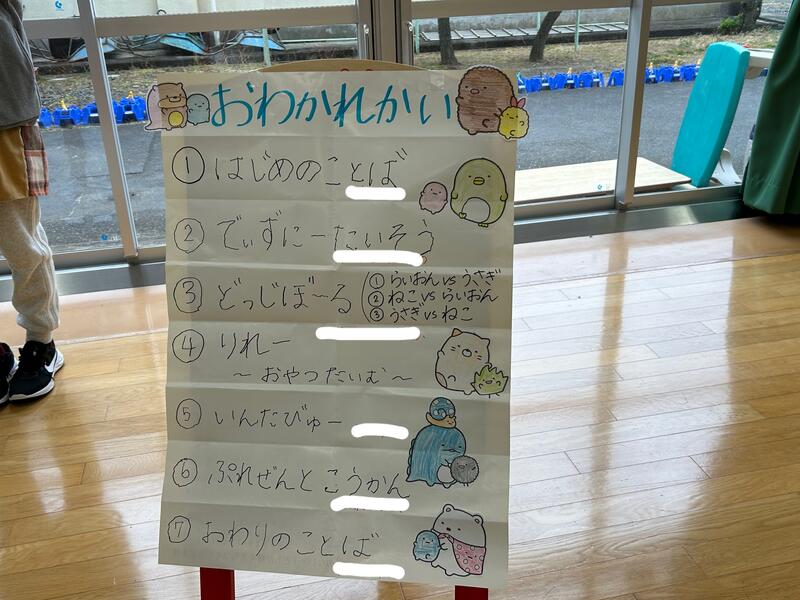 おわかれかい
① はじめのことば
② でぃずにーたいそう
③ どっじぼーる
① らいおん vs うさぎ
② ねこ vs らいおん
③ うさぎ vs ねこ
④ りれー
～おやつたいむ～
⑤ いんたびゅー
⑥ ぷれぜんとこうかん
⑦ おわりのことば